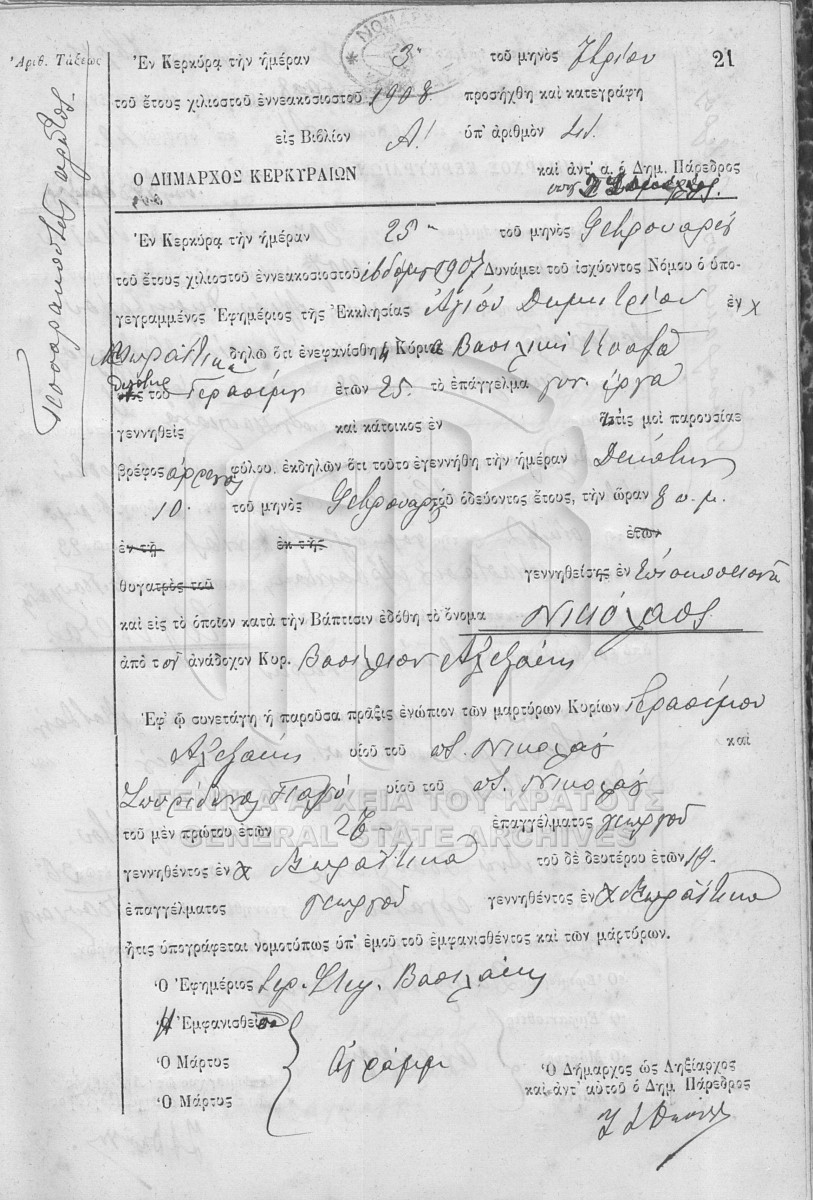 21
Ἀριθ. Τάξεως
Τεσσαρακοστὸς πρῶτος.
Ἐν Κερκύρᾳ τὴν ἡμέραν 3 τοῦ μηνὸς
τοῦ ἔτους χιλιοστοῦ ἐννεακοσιοστοῦ 1908 προσήχθη καὶ κατεγράφη
εἰς Βιβλίον Α! ὑπ' ἀριθμὸν
Ο ΔΗΜΑΡΧΟΣ ΚΕΡΚΥΡΑΙΩΝ καὶ ἀντ' α. ὁ Δημ. Πάρεδρος
Ἐν Κερκύρᾳ τὴν ἡμέραν 25 τοῦ μηνὸς Φεβρουαρίου
τοῦ ἔτους χιλιοστοῦ ἐννεακοσιοστοῦ ἑβδόμου 1907 Δυνάμει τοῦ ἰσχύοντος Νόμου ὁ ὑπο-
γεγραμμένος Ἐφημέριος τῆς Ἐκκλησίας Ἁγίου Δημητρίου ἐν χ
Μωραΐτικα δηλῶ ὅτι ἐνεφανίσθη ἡ Κύρια Βασιλικὴ
τοῦ Γερασίμου ἐτῶν 25. τὸ ἐπάγγελμα
γεννηθεὶς καὶ κάτοικος ἐν ἥτις μοὶ παρουσίασε
βρέφος ἄρρενος φύλου. ἐκδηλῶν ὅτι τοῦτο ἐγεννήθη τὴν ἡμέραν Δεκάτην
10. τοῦ μηνὸς Φεβρουαρίου τοῦ ὁδεύοντος ἔτους, τὴν ὥραν 8 π. μ.
ἐν τῇ ἐκ τῆς ἐτῶν
θυγατρὸς τοῦ γεννηθείσης ἐν Ἐπισκοπιανὰ
καὶ εἰς τὸ ὁποῖον κατὰ τὴν Βάπτισιν ἐδόθη τὸ ὄνομα Νικόλαος
ἀπὸ τὸν ἀνάδοχον Κυρ. Βασίλειον Ἀλεξάκης
Ἐφ' ᾧ συνετάγη ἡ παροῦσα πρᾶξις ἐνώπιον τῶν μαρτύρων Κυρίων Γερασίμου
Ἀλεξάκης υἱοῦ τοῦ Νικολάου καὶ
Σπυρίδωνος υἱοῦ τοῦ Νικολάου
τοῦ μὲν πρώτου ἐτῶν ἐπαγγέλματος γεωργοῦ
γεννηθέντος ἐν χ Μωραΐτικα τοῦ δὲ δευτέρου ἐτῶν 19.
ἐπαγγέλματος γεωργοῦ γεννηθέντος ἐν χ Μωραΐτικα
ἥτις ὑπογράφεται νομοτύπως ὑπ' ἐμοῦ τοῦ ἐμφανισθέντος καὶ τῶν μαρτύρων.
Ὁ Ἐφημέριος Βασιλάκης
Ἡ Ἐμφανισθεῖσα
Ὁ Μάρτυς ἀγράμμ
Ὁ Μάρτυς
Ὁ Δήμαρχος ὡς Ληξίαρχος
καὶ ἀντ' αὐτοῦ ὁ Δημ Πάρεδρος
ΓΕΝΙΚΑ ΑΡΧΕΙΑ ΤΟΥ ΚΡΑΤΟΥΣ
GENERAL STATE ARCHIVES